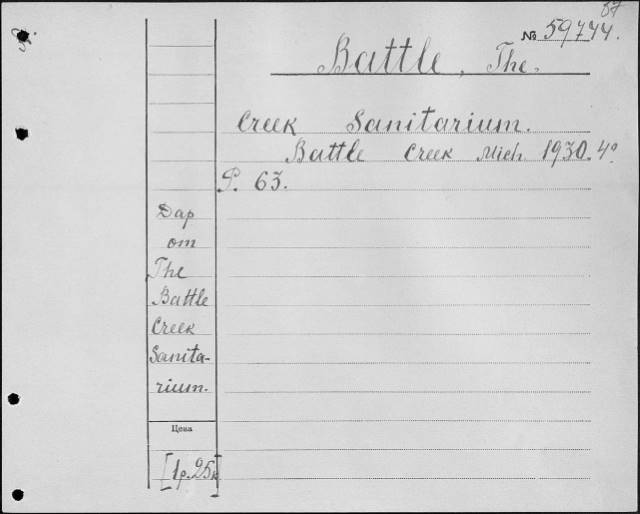 57
№ 59744.
Battle, The.
Creek Sanitarium.
Battle Creek Mich. 1930. 4°
P. 63.
Дар
от
The
Battle
Creek
Sanita-
rium.
Цена
[1р.25к]